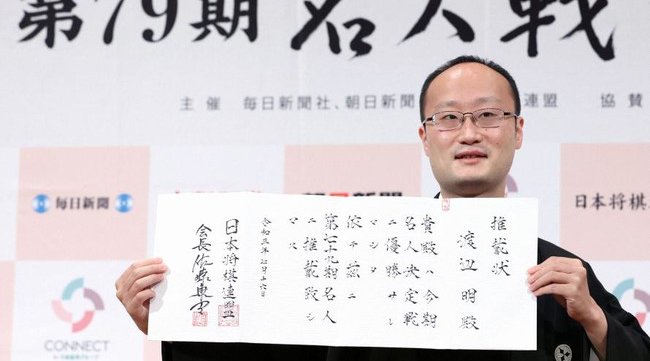 第79期 名人戦
主催 毎日新聞社、朝日新聞
連盟 協賛
毎日新聞
日本将棋
CONNECT
推戴状
渡辺 明殿
貴殿ハ今期
名人決定戦
ニ優勝サレ
マシタ
依テ茲ニ
第七十九期名人
ニ推戴致シ
マス
令和三年七月十六日
日本将棋連盟
会長 佐藤康光